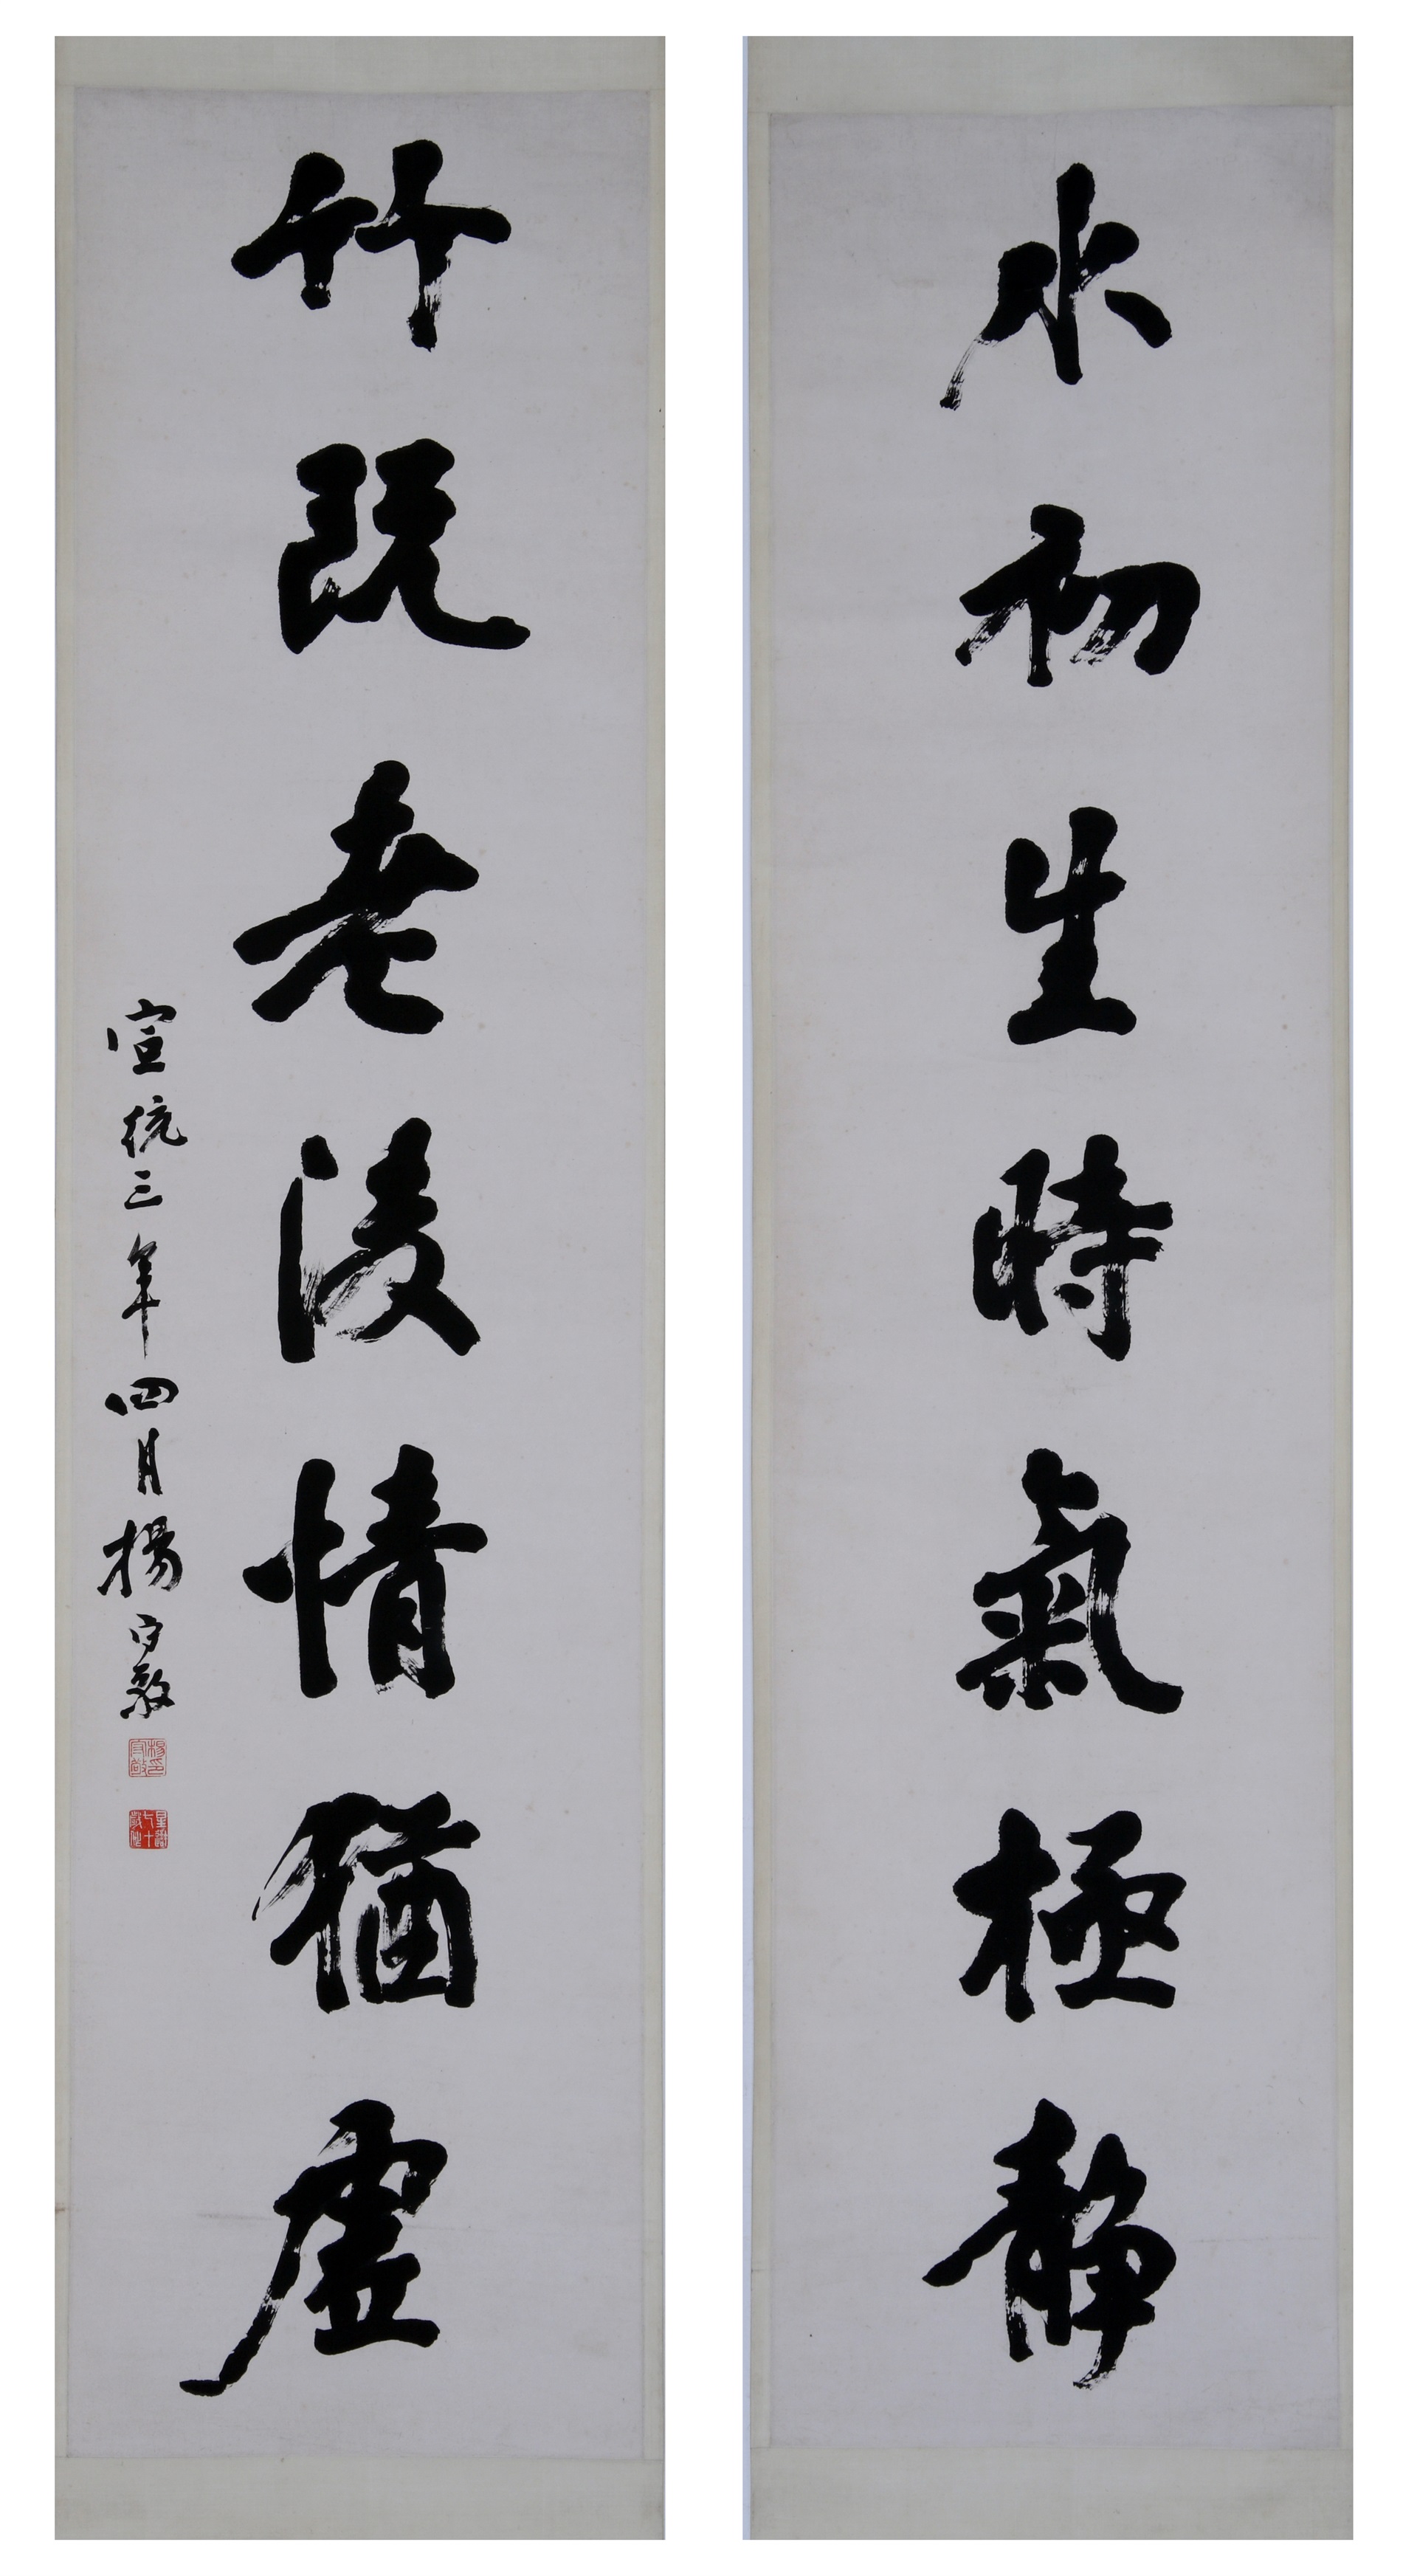 水初生時氣極靜
竹既老後情猶虛
宣統三年四月楊守敬
楊印守敬